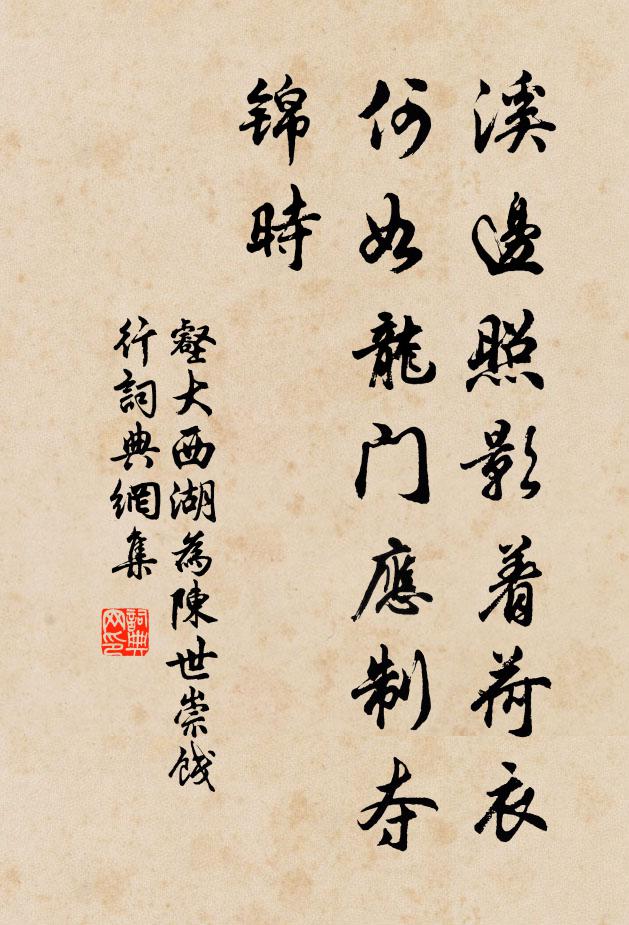 溪邊照影着荷衣
何如龍門應制夺
锦時
壑大西湖為陳世崇餞
行詞典網集
詞典